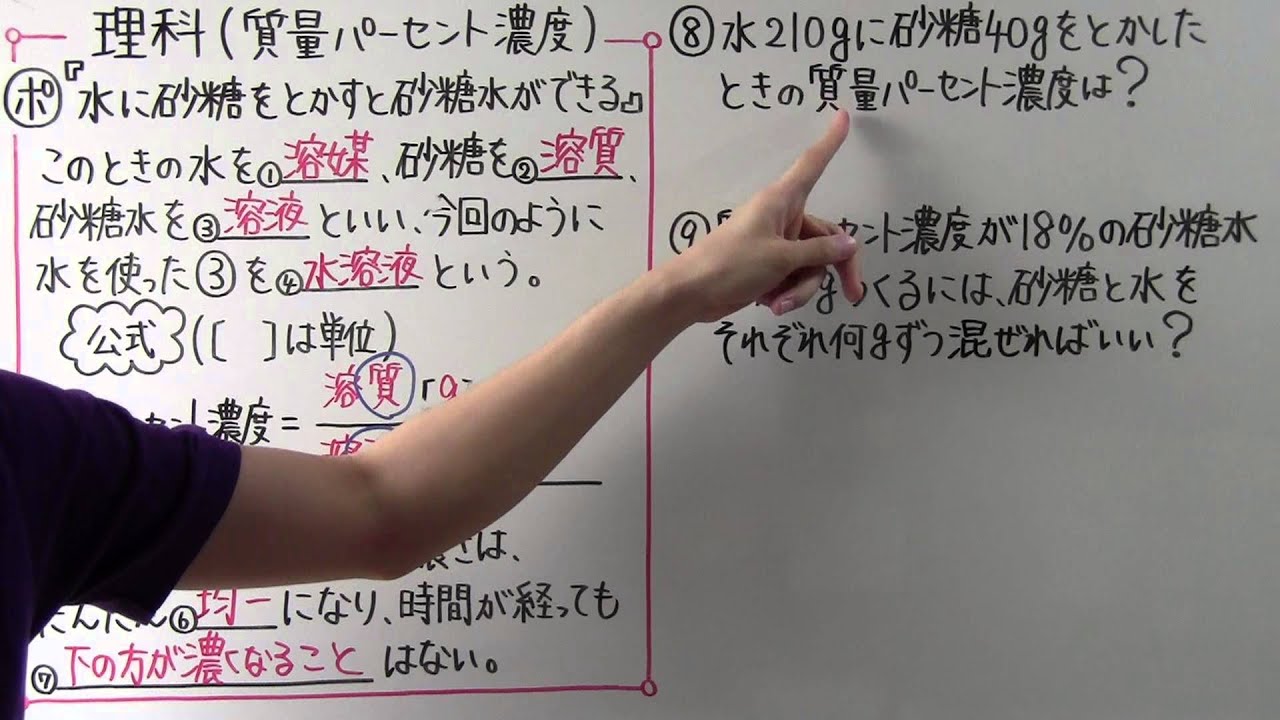 理科(質量パーセント濃度)
ポ『水に砂糖をとかすと砂糖水ができる』
このときの水を①溶媒、砂糖を②溶質、
砂糖水を③溶液といい、今回のように
水を使った③を④水溶液という。
公式([ ]は単位)
溶質[g
セント濃度=
濃さは、
だんだん⑥均一になり、時間が経っても
⑦下の方が濃くなることはない。
⑧水210gに砂糖40gをとかした
ときの質量パーセント濃度は?
⑨セント濃度が18%の砂糖水
gつくるには、砂糖と水を
それぞれ何gずつ混ぜればいい?